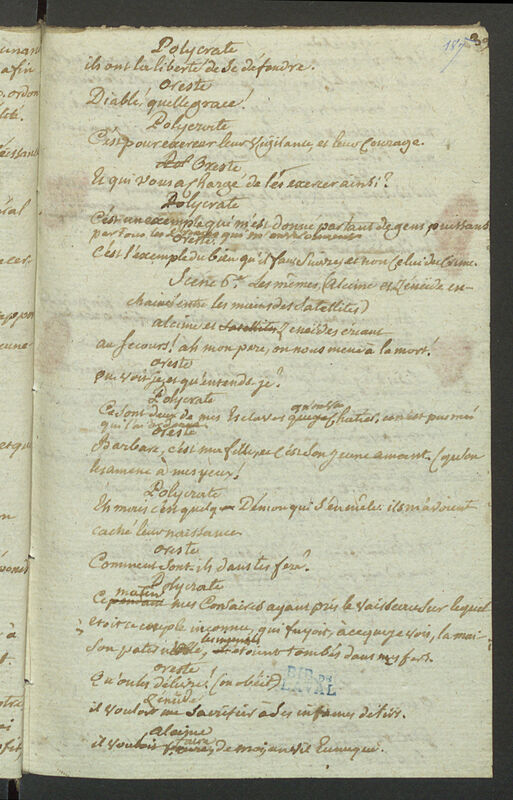 187 39
Polycrate
ils ont la liberté de se défendre.
oreste
Diable quelle grace!
Polycrate
C'est pour exercer leur vigilance et leur courage.
Pol Oreste
Et qui vous a chargé de les exercer ainsi?
Polycrate
C'est un exemple qui m'est donné par tant de gens puissans
par tous les qui m'environnent
Oreste
C'est l'exemple du bien qu'il faut suivre, et non celui du crime.
Scene 6e. Les mêmes, (alcine et Zeneide en-
chainés entre les mains des satellites)
alcine et satellites Zeneide criant
au secours! ah mon pere, on nous mene à la mort!
oreste
que vois-je, et qu'entends-je?
Polycrate
Ce sont deux de mes Esclaves qu'on va chatier, ce n'est pas moi
qui l'ai ordonné
oreste
Barbare, c'est ma fille, et c'est son jeune amant. (qu'on
les amene à mes yeux!
Polycrate
Eh mais c'est quelque Démon qui s'en mêle. ils m'avoient
caché leur naissance
oreste
Comment sont-ils dans tes fers?
Polycrate
Cependant matin mes Corsaires ayant pris le vaisseau sur lequel
etoit ce couple inconnu, qui fuyoit, à ce que je vois, la mai-
son paternelle, ils etoient tombés dans mes fers.
oreste
Qu'on les délivre! (on obéit)
Zéneide
il vouloit me sacrifier a ses infames désirs.
alcine
il vouloit faire, de moi, un vil Eunuque.
BIB. DE
LAVAL